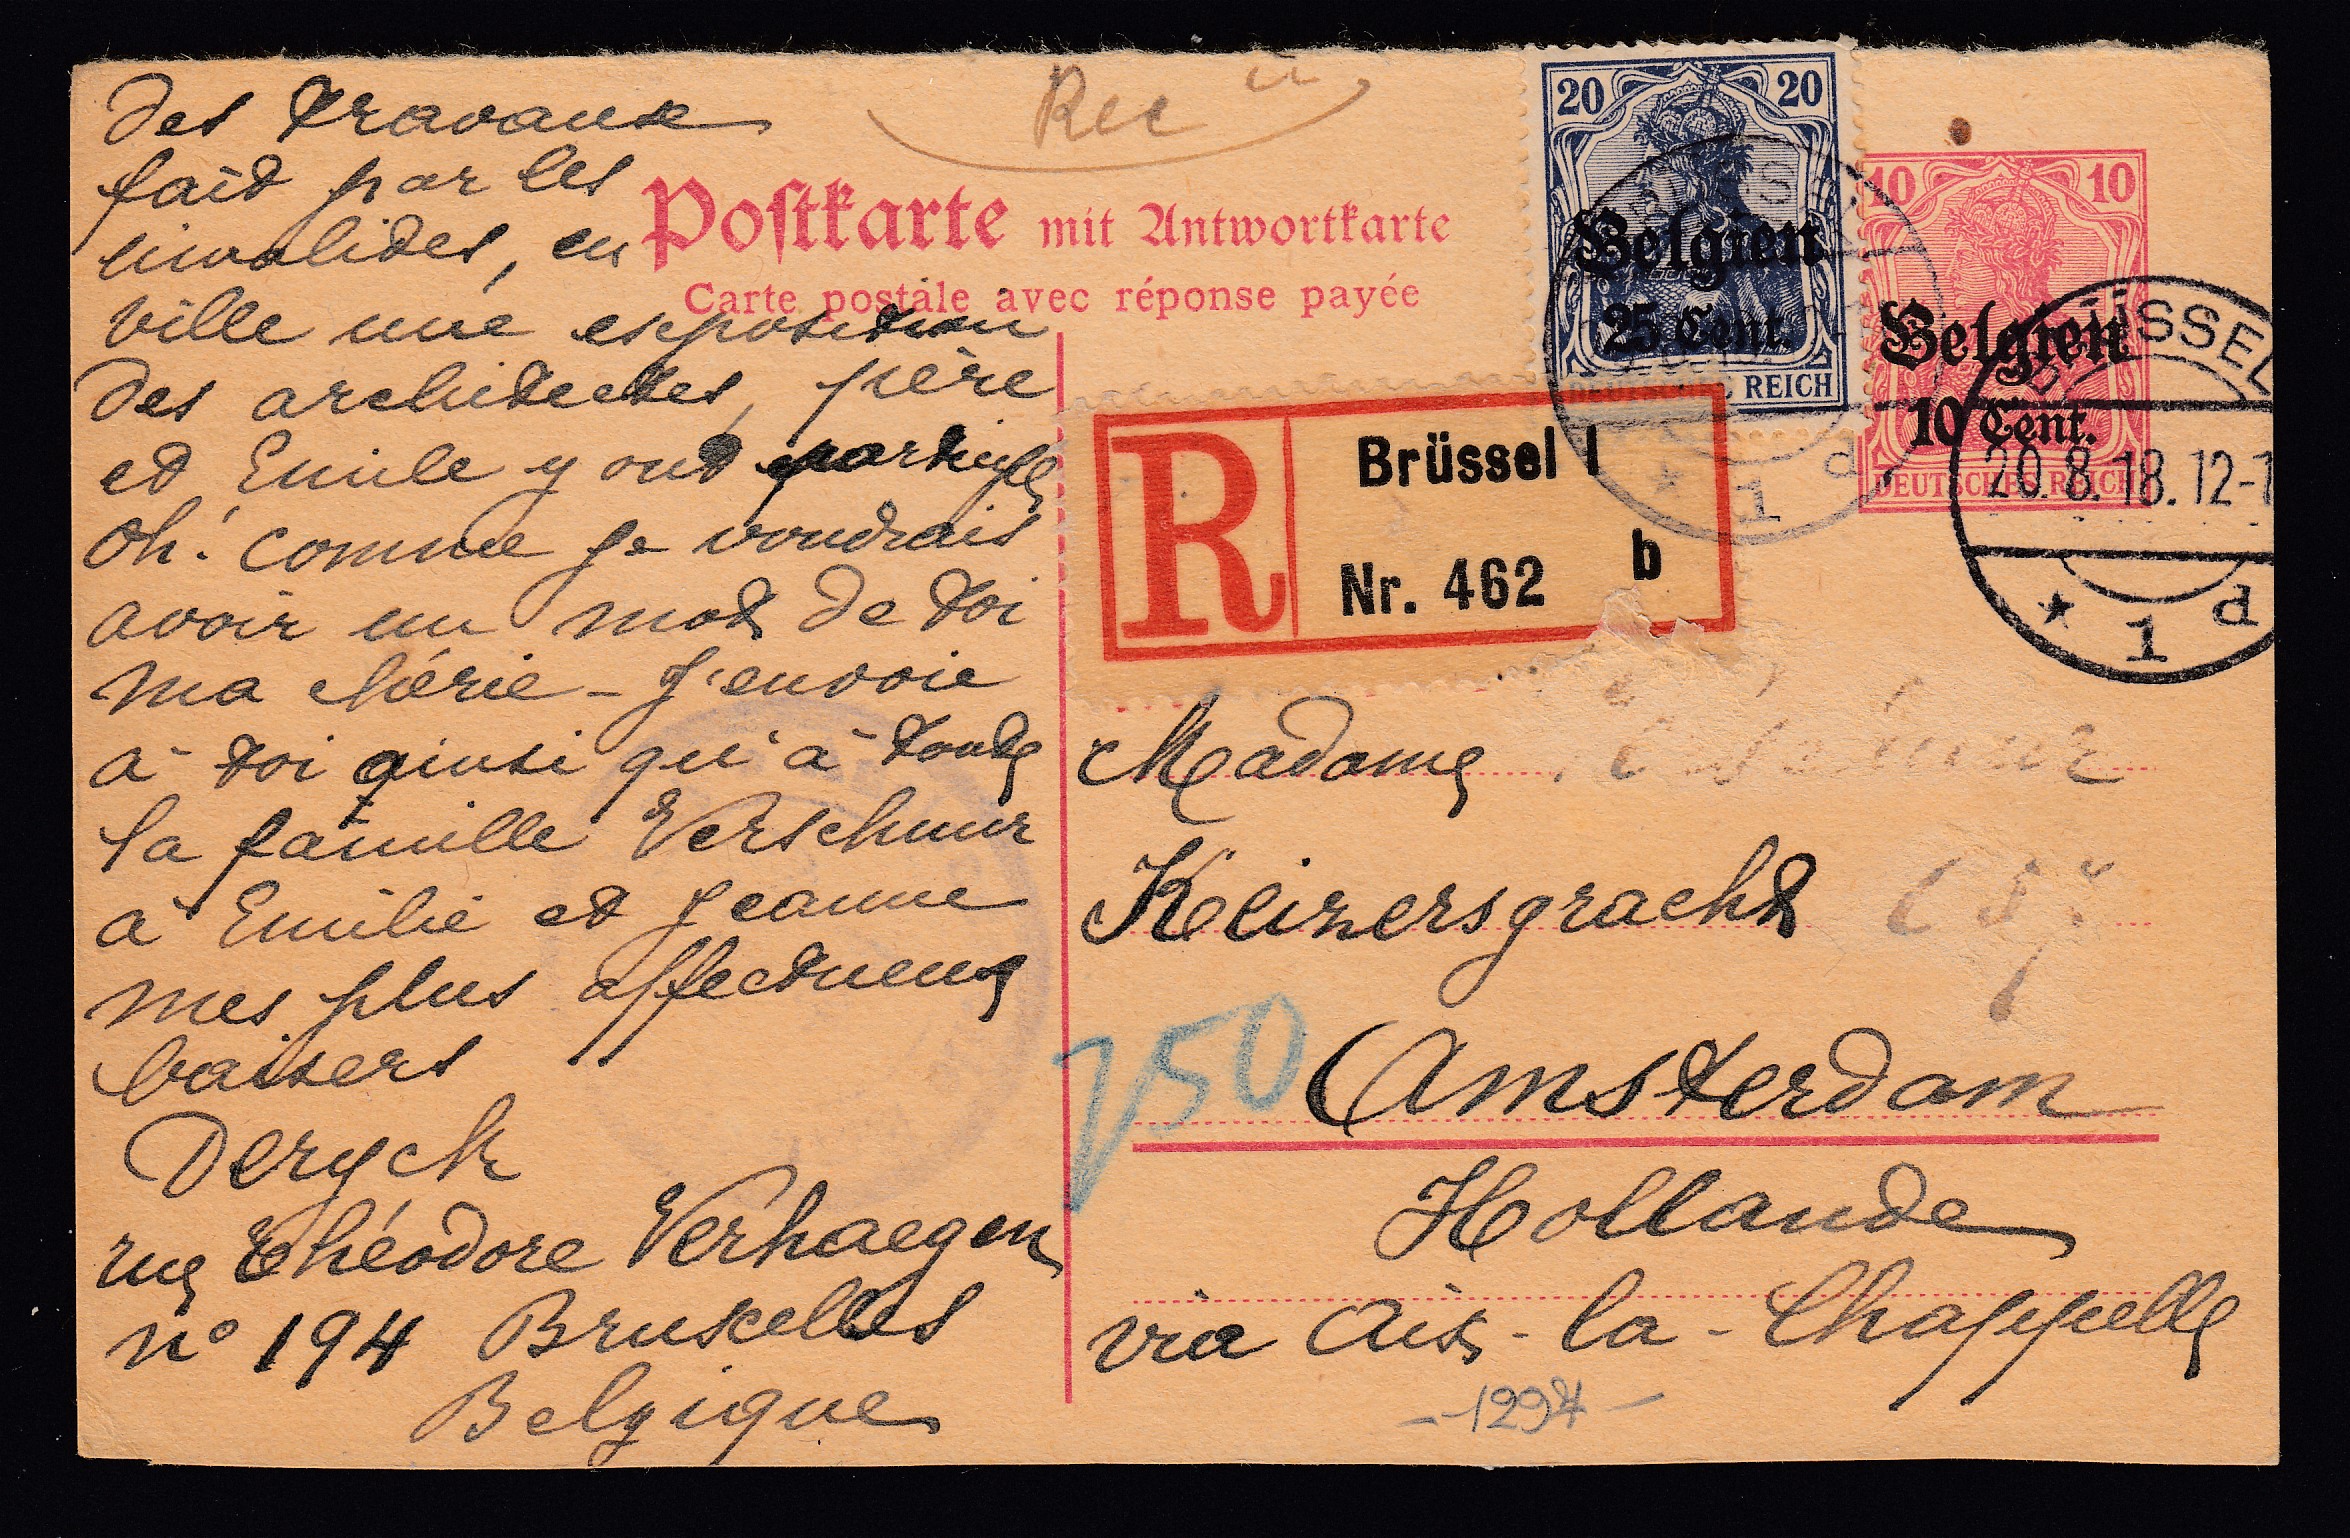 des travaux
fait par les
invalides, en
ville une exposition
des architectes, père
et Emile y ont participé
oh! comme je voudrais
avoir un mot de toi
ma chérie - J'envoie
à toi ainsi qu'à toute
la famille Verschuur
à Emilie et Jeanne
mes plus affectueux
baisers
Deryck
rue Théodore Verhaegen
n° 194 Bruxelles
Belgique
Rec
Postkarte mit Antwortkarte
Carte postale avec réponse payée
20 20
Belgien
25 Cent.
DEUTSCHES REICH
10 10
Belgien
10 Cent.
DEUTSCHES REICH
BRÜSSEL
20.8.18.12-1
* 1 d
* 1 d
R
Brüssel 1
Nr. 462 b
Madame
Keizersgracht
750
Amsterdam
Hollande
via Aix-la-Chappelle
-1294-